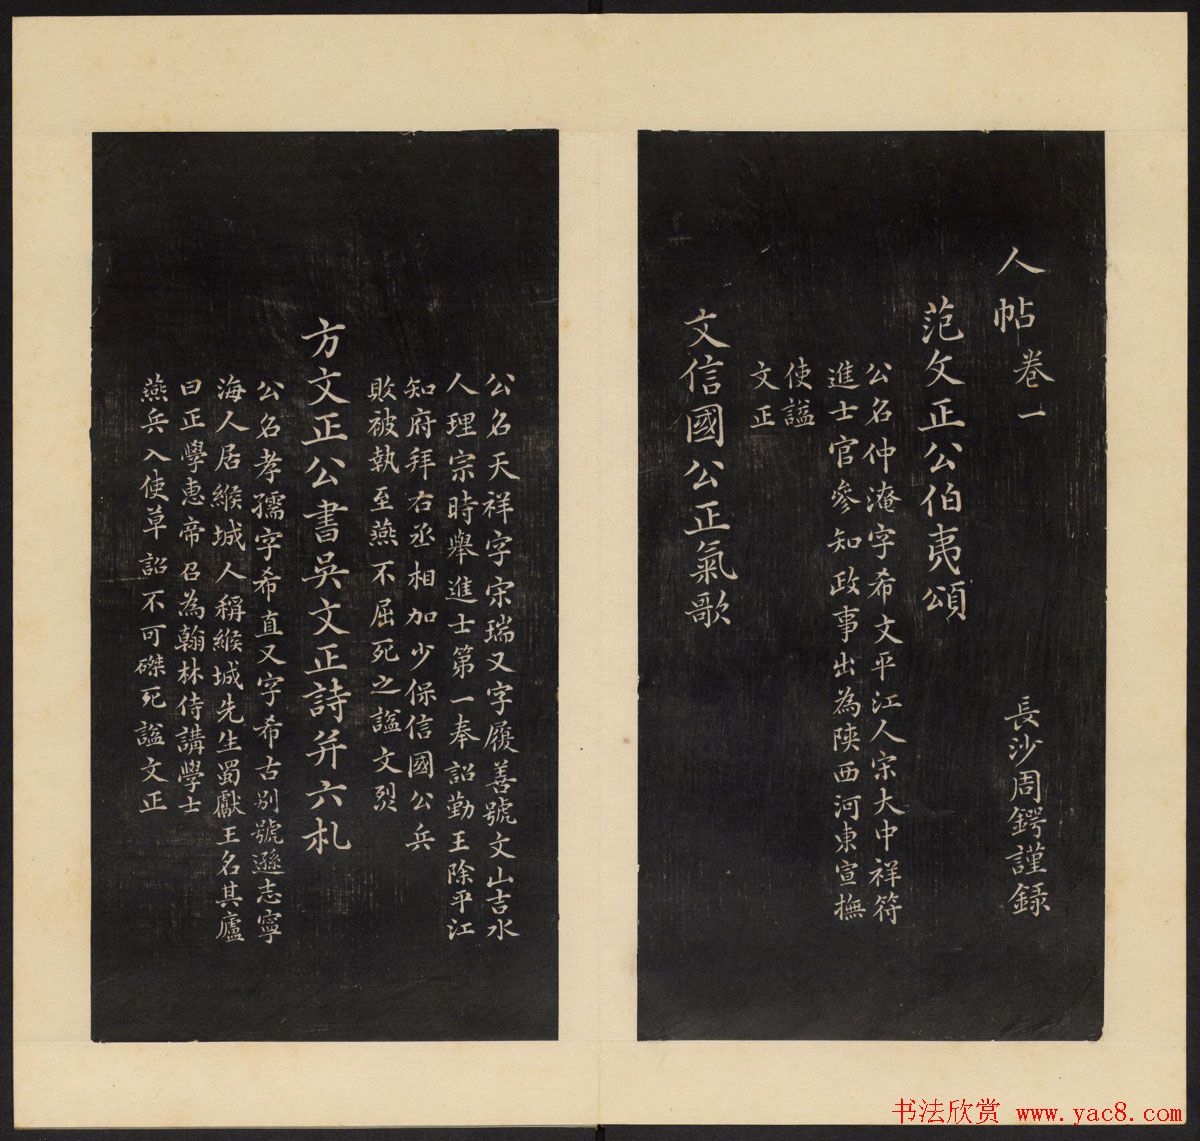 人帖 卷一
長沙周鍔謹録
范文正公伯夷頌
公名仲淹字希文平江人宋大中祥符
進士官參知政事出為陝西河東宣撫
使諡
文正
文信國公正氣歌
公名天祥字宋瑞又字履善號文山吉水
人理宗時舉進士第一奉詔勤王除平江
知府拜右丞相加少保信國公兵
敗被執至燕不屈死之諡文烈
方文正公書吳文正詩并六札
公名孝孺字希直又字希古別號遜志寧
海人居緱城人稱緱城先生蜀獻王名其廬
曰正學惠帝召為翰林侍講學士
燕兵入使草詔不可磔死諡文正
书法欣赏 www.yac8.com